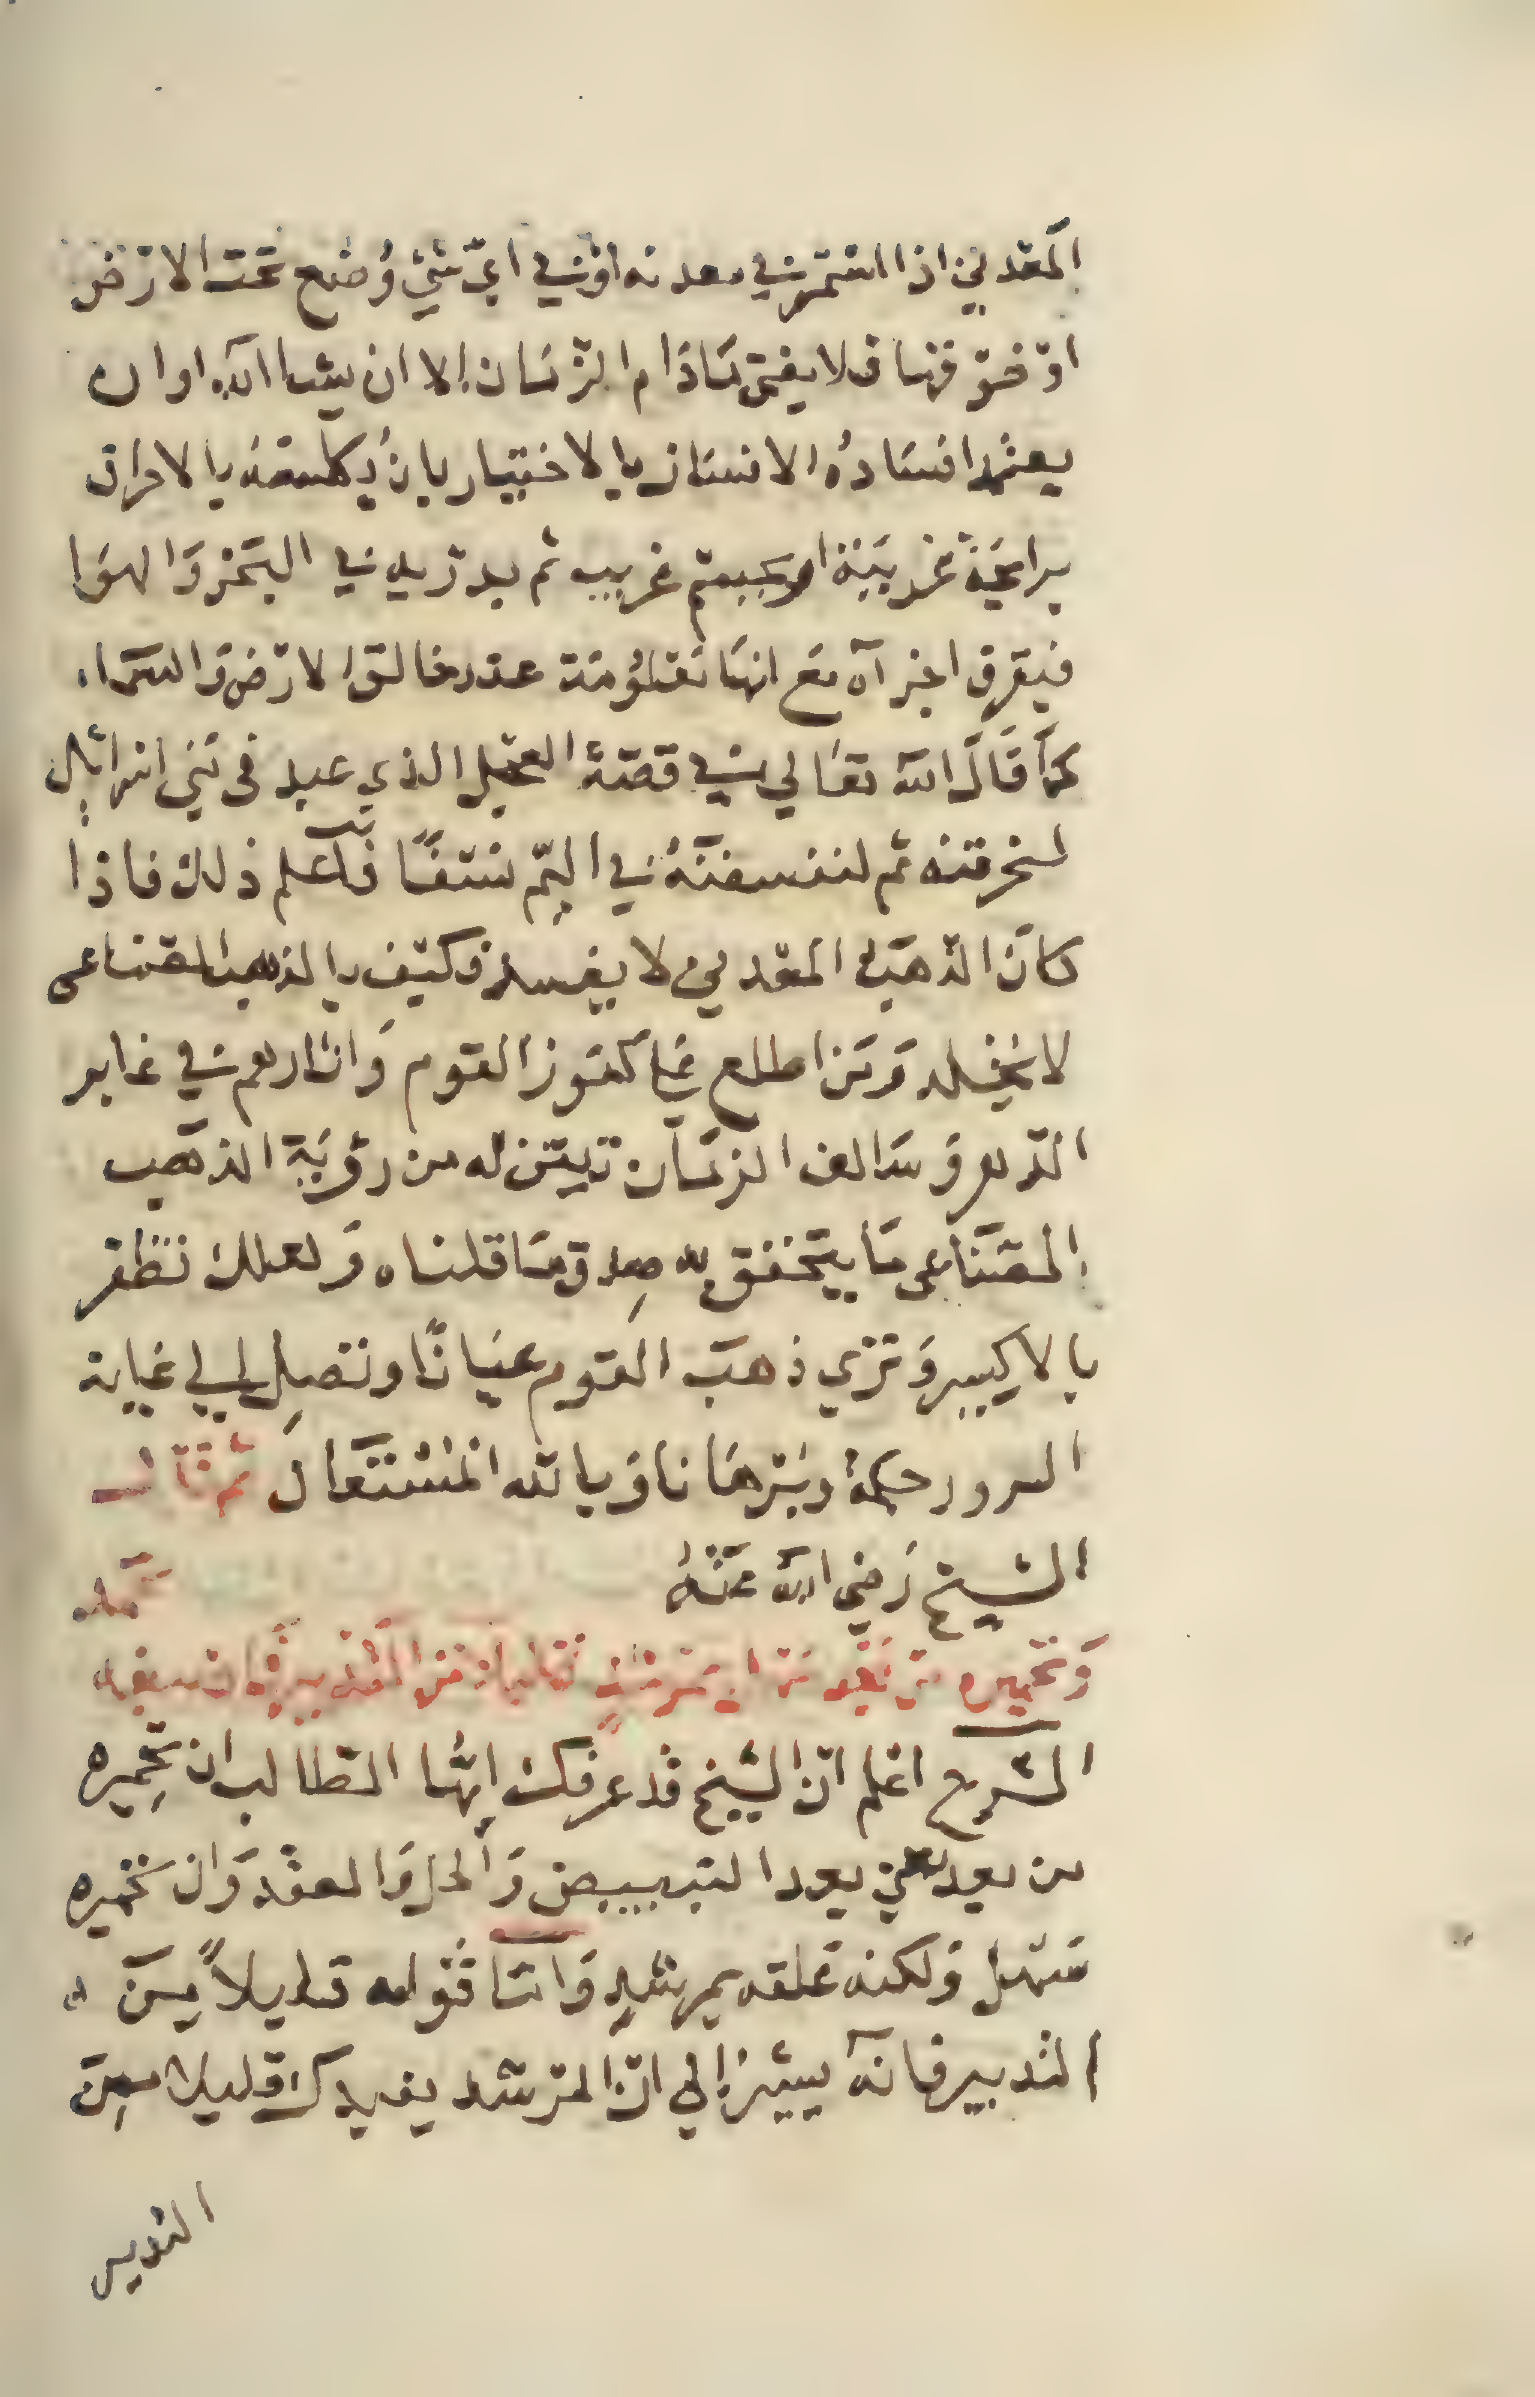 المعدني اذا استمر في معدنه او في اي شي وُضع تحت الارض
او فوقها فلا يفنى مادام الزمان الا ان يشا الله او ان
يعتمد افساده الانسان بالاختيار بان يكلسه بالاحراق
برايحة غريبة او بجسم غريب ثم يدريه في البحر والهوا
فيفرق اجزآه مع انها معلومة عند خالق الارض والسما
كما قال الله تعالي في قصة العجل الذي عبد في بني اسرائيل
لنحرقنه ثم لننسفنه في اليم نسفًا فاعلم ذلك فاذا
كان الذهب المعدني لا يفسد فكيف بالذهب الصناعى
لا ومن اطلع على كنوز القوم واثارهم في غابر
الدهر وسالف الزمان تبين له من رؤية الذهب
الصناعى ما يتحقق به صدق ما قلناه ولعلك تظفر
بالاكسير وترى ذهب القوم عيانًا وتصل الي غاية
السرور حكمة وبرهانا وبالله المستعان ثم قال
الشيخ رضي الله عنه
وتخميره من بعد من التدبير
الشرح اعلم ان الشيخ قد عرفك ايها الطالب ان تخميره
من بعد يعني بعد التبييض والحل والعقد وان تخميره
سهل ولكنه علقه بمرشدٍ واما قوله قليلاً من
التدبير فانه يشير الي ان المرشد يفيدك قليلا من
التدبير